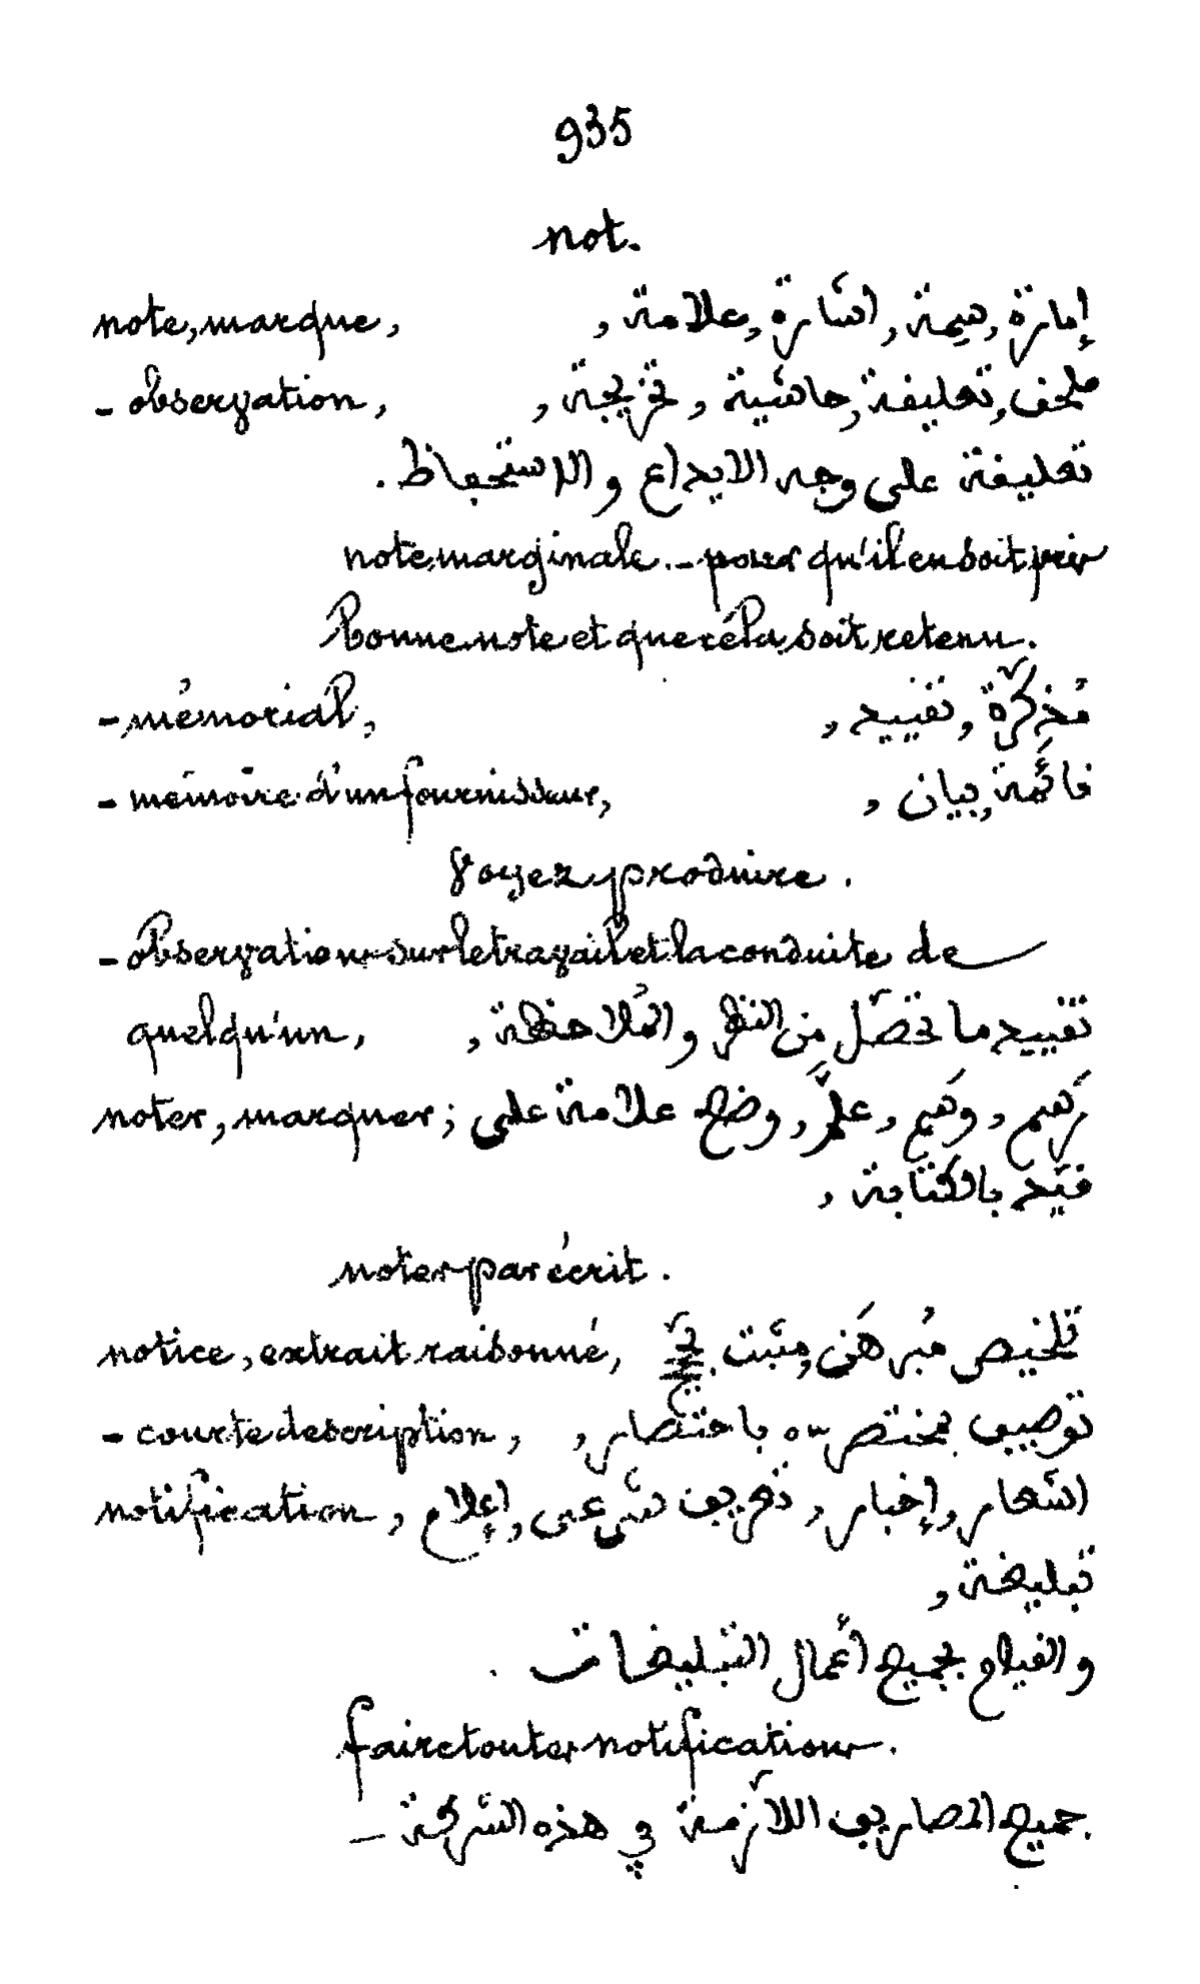 935
not.
note, marque, إمارة, سِمة, اشارة, علامة,
- observation, ملحق, تعليقة, حاشية, تخريجة,
تعليقة على وجه الايداع و الاستحفاظ.
note marginale. - pour qu'il en soit pris
bonne note et que cela soit retenu.
- mémorial, مُذكِّرة, تقييد,
- mémoire d'un fournisseur, قائمة, بيان,
Voyez produire.
- observations sur le travail et la conduite de
quelqu'un, تقييد ما تحصّل من النظر و المُلاحظة,
noter, marquer; رَسم, وسَم, علَّم, وضع علامة على
قيّد بالكتابة,
noter par écrit.
notice, extrait raisonné, تلخيص مُبرهَن, مثبت بحجج
- courte description, توصيف مختصر باختصار,
notification, اشعار, إخبار, تعريف شرعي, إعلام,
تبليغة,
و القيام بجميع أعمال التبليغات.
faire toutes notifications.
جميع المصاريف اللازمة في هذه الشركة -